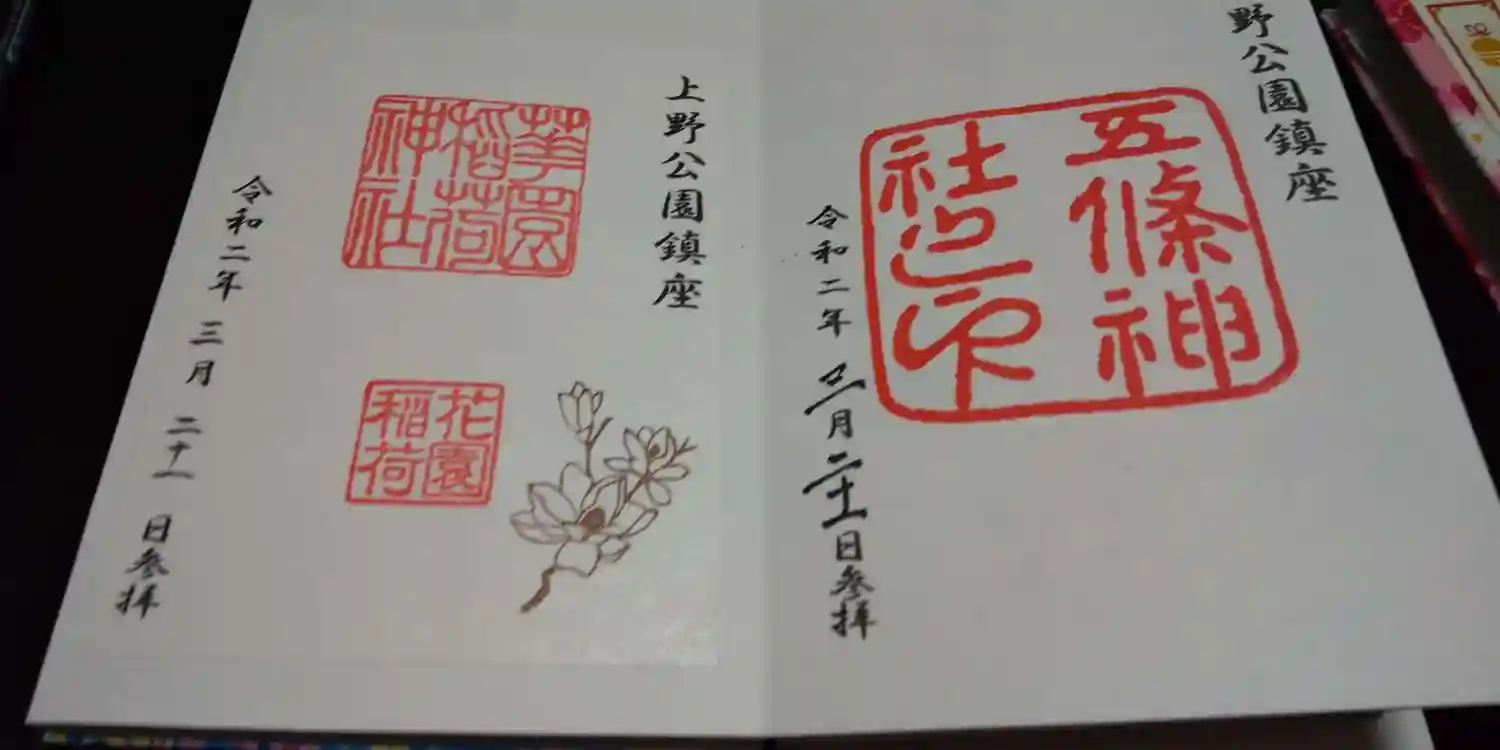 野公園鎮座
五條神
社之印
令和二年三月二十一日参拝
上野公園鎮座
華園
稲荷
神社
花園
稲荷
令和二年 三月 二十一 日参拝